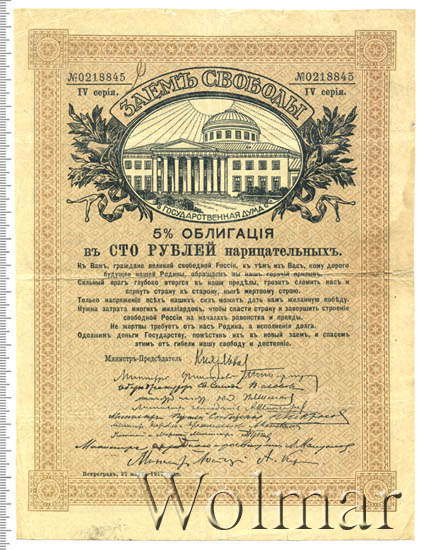 №0218845 №0218845
IV серія. IV серія.
ЗАЕМЪ СВОБОДЫ
ГОСУДАРСТВЕННАЯ ДУМА
5% ОБЛИГАЦІЯ
въ СТО РУБЛЕЙ нарицательныхъ.
Къ Вамъ, граждане великой свободной Россіи, къ тѣмъ изъ Васъ, кому дорого
будущее нашей Родины, обращаемъ мы нашъ горячій призывъ.
Сильный врагъ глубоко вторгся въ наши предѣлы, грозитъ сломить насъ и
вернуть страну къ старому, нынѣ мертвому строю.
Только напряженіе всѣхъ нашихъ силъ можетъ дать намъ желанную побѣду.
Нужна затрата многихъ милліардовъ, чтобы спасти страну и завершить строеніе
свободной Россіи на началахъ равенства и правды.
Не жертвы требуетъ отъ насъ Родина, а исполненія долга.
Одолжимъ деньги Государству, помѣстивъ ихъ въ новый заемъ, и спасемъ
этимъ отъ гибели нашу свободу и достояніе.
Министръ-Предсѣдатель Кн. Львовъ
Министръ
Петроградъ, 27 марта 1917
Wolmar